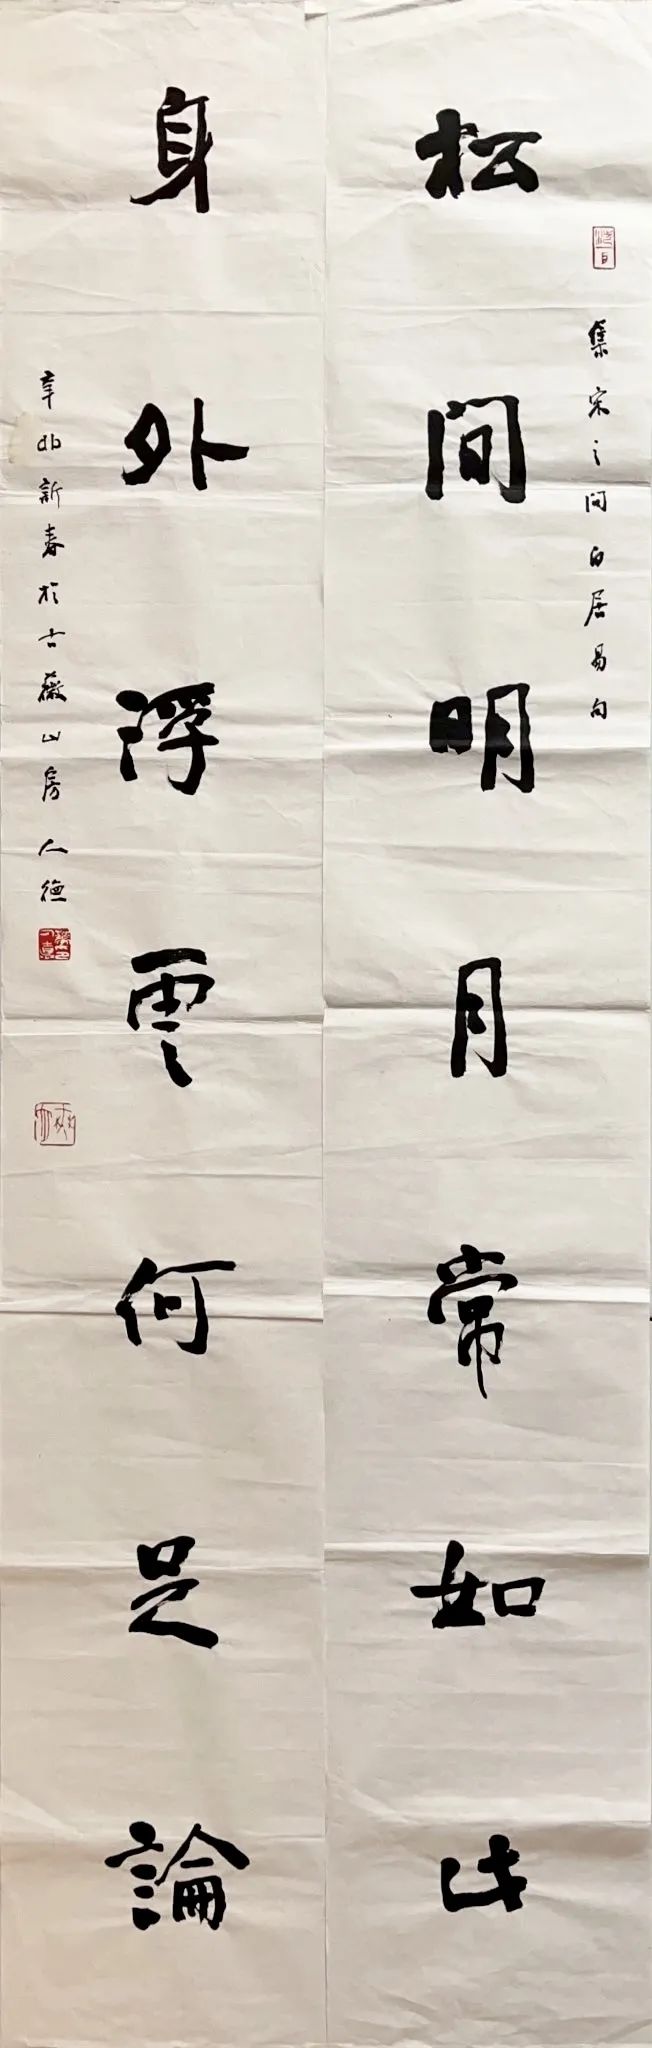 松間明月常如此
集宋之問白居易句
身外浮雲何足論
辛卯新春於古薇山房人德